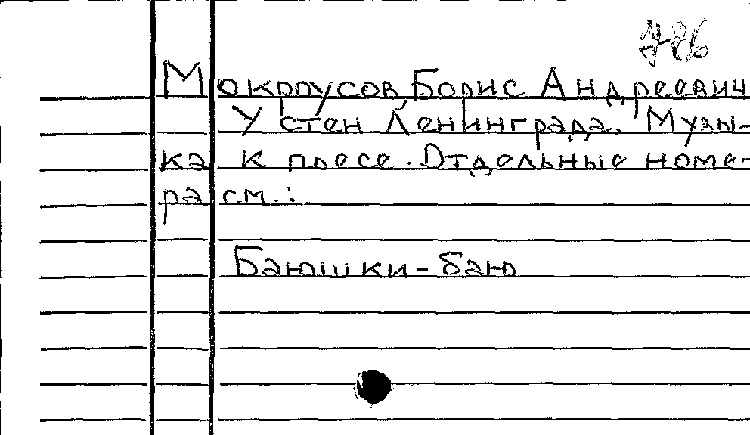 486
Мокроусов Борис Андреевич
У стен Ленинграда. Музы-
ка к пьесе. Отдельные номе-
ра см.:
Баюшки-баю